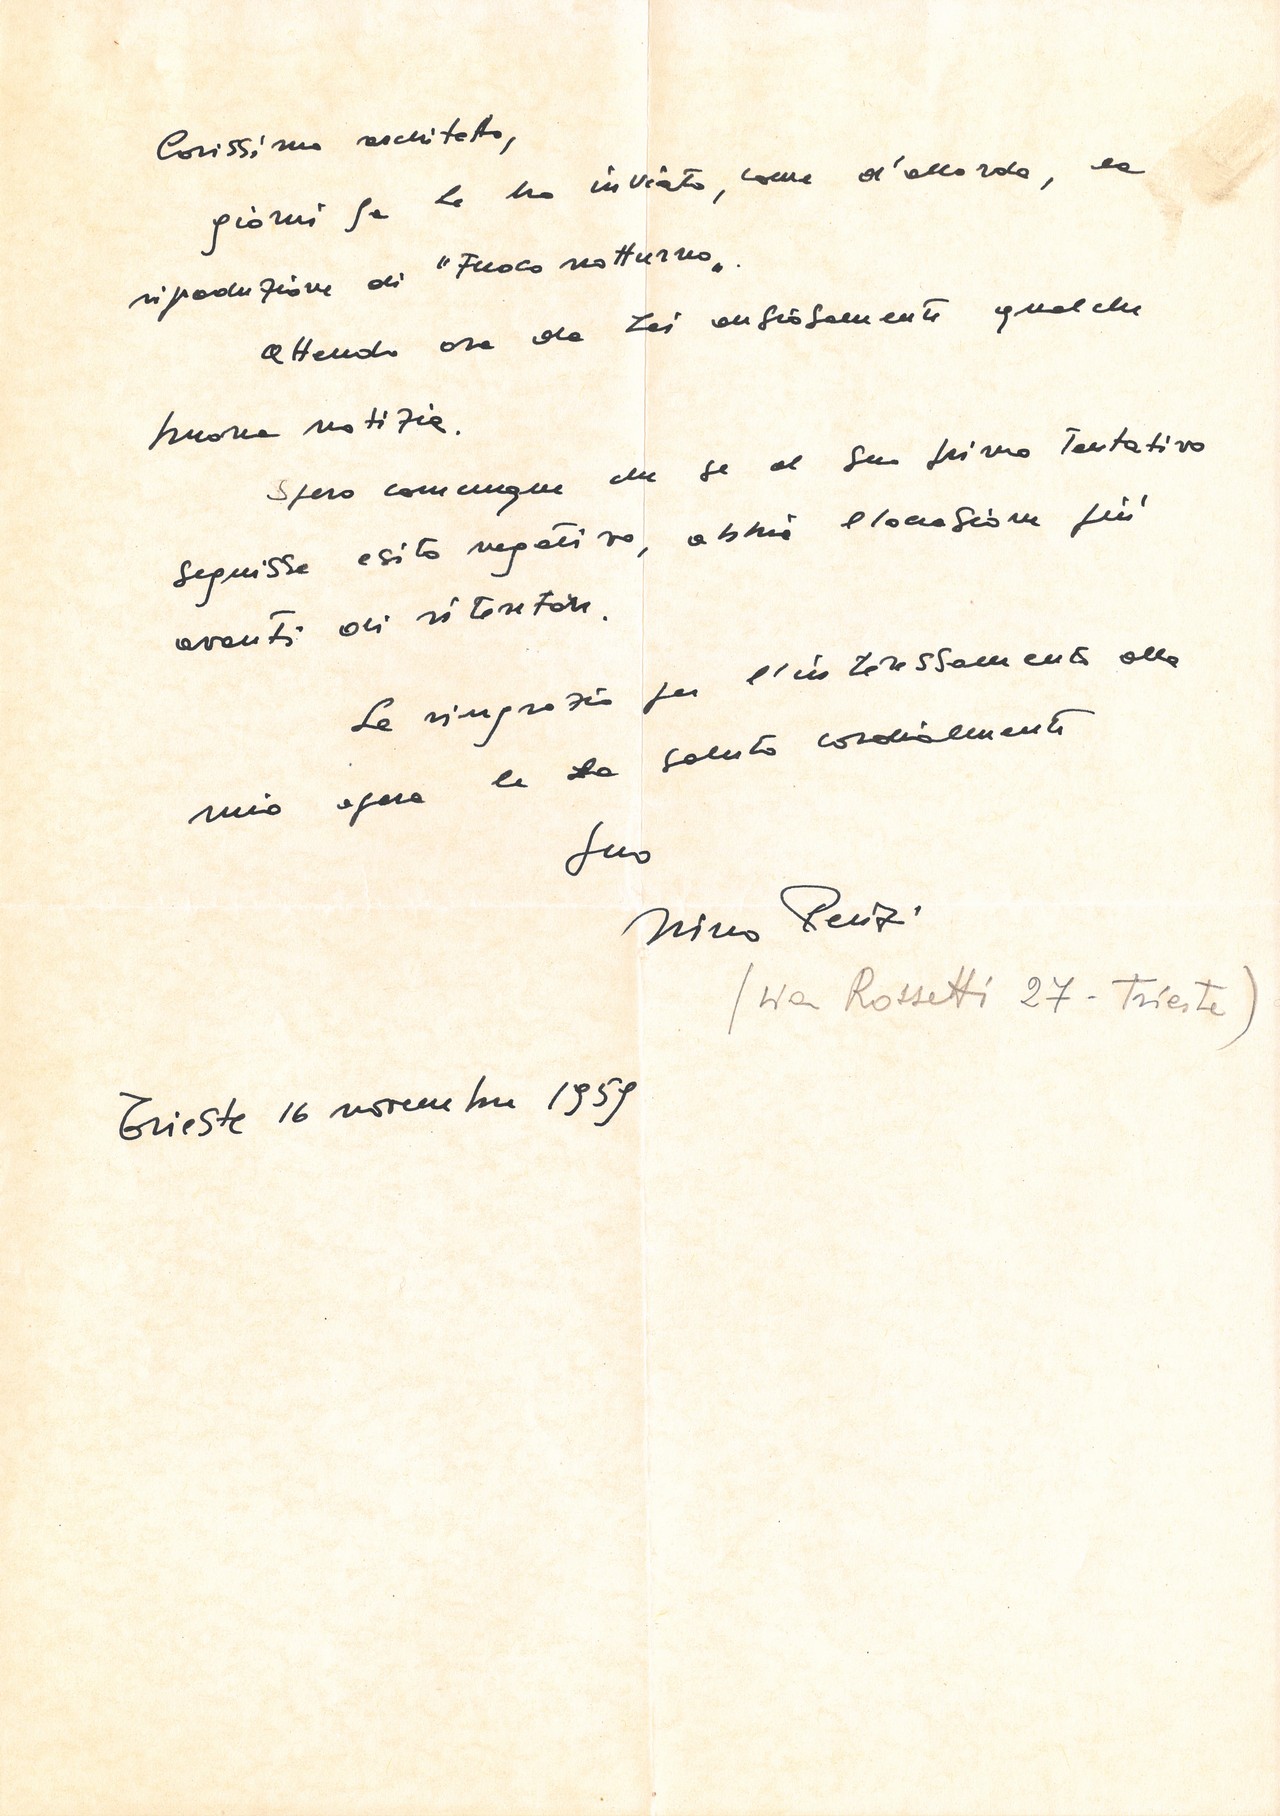 Carissimo architetto,
giorni fa Le ho inviato, come d'accordo, la
riproduzione di "Fuoco notturno".
Attendo ora da Lei ansiosamente qualche
buona notizia.
Spero comunque che se al Suo primo tentativo
seguisse esito negativo, abbia l'occasione più
avanti di ritentare.
La ringrazio per l'interessamento alla
mia opera e La saluto cordialmente
Suo
Nino Perizi
(via Rossetti 27 - Trieste)
Trieste 16 novembre 1959